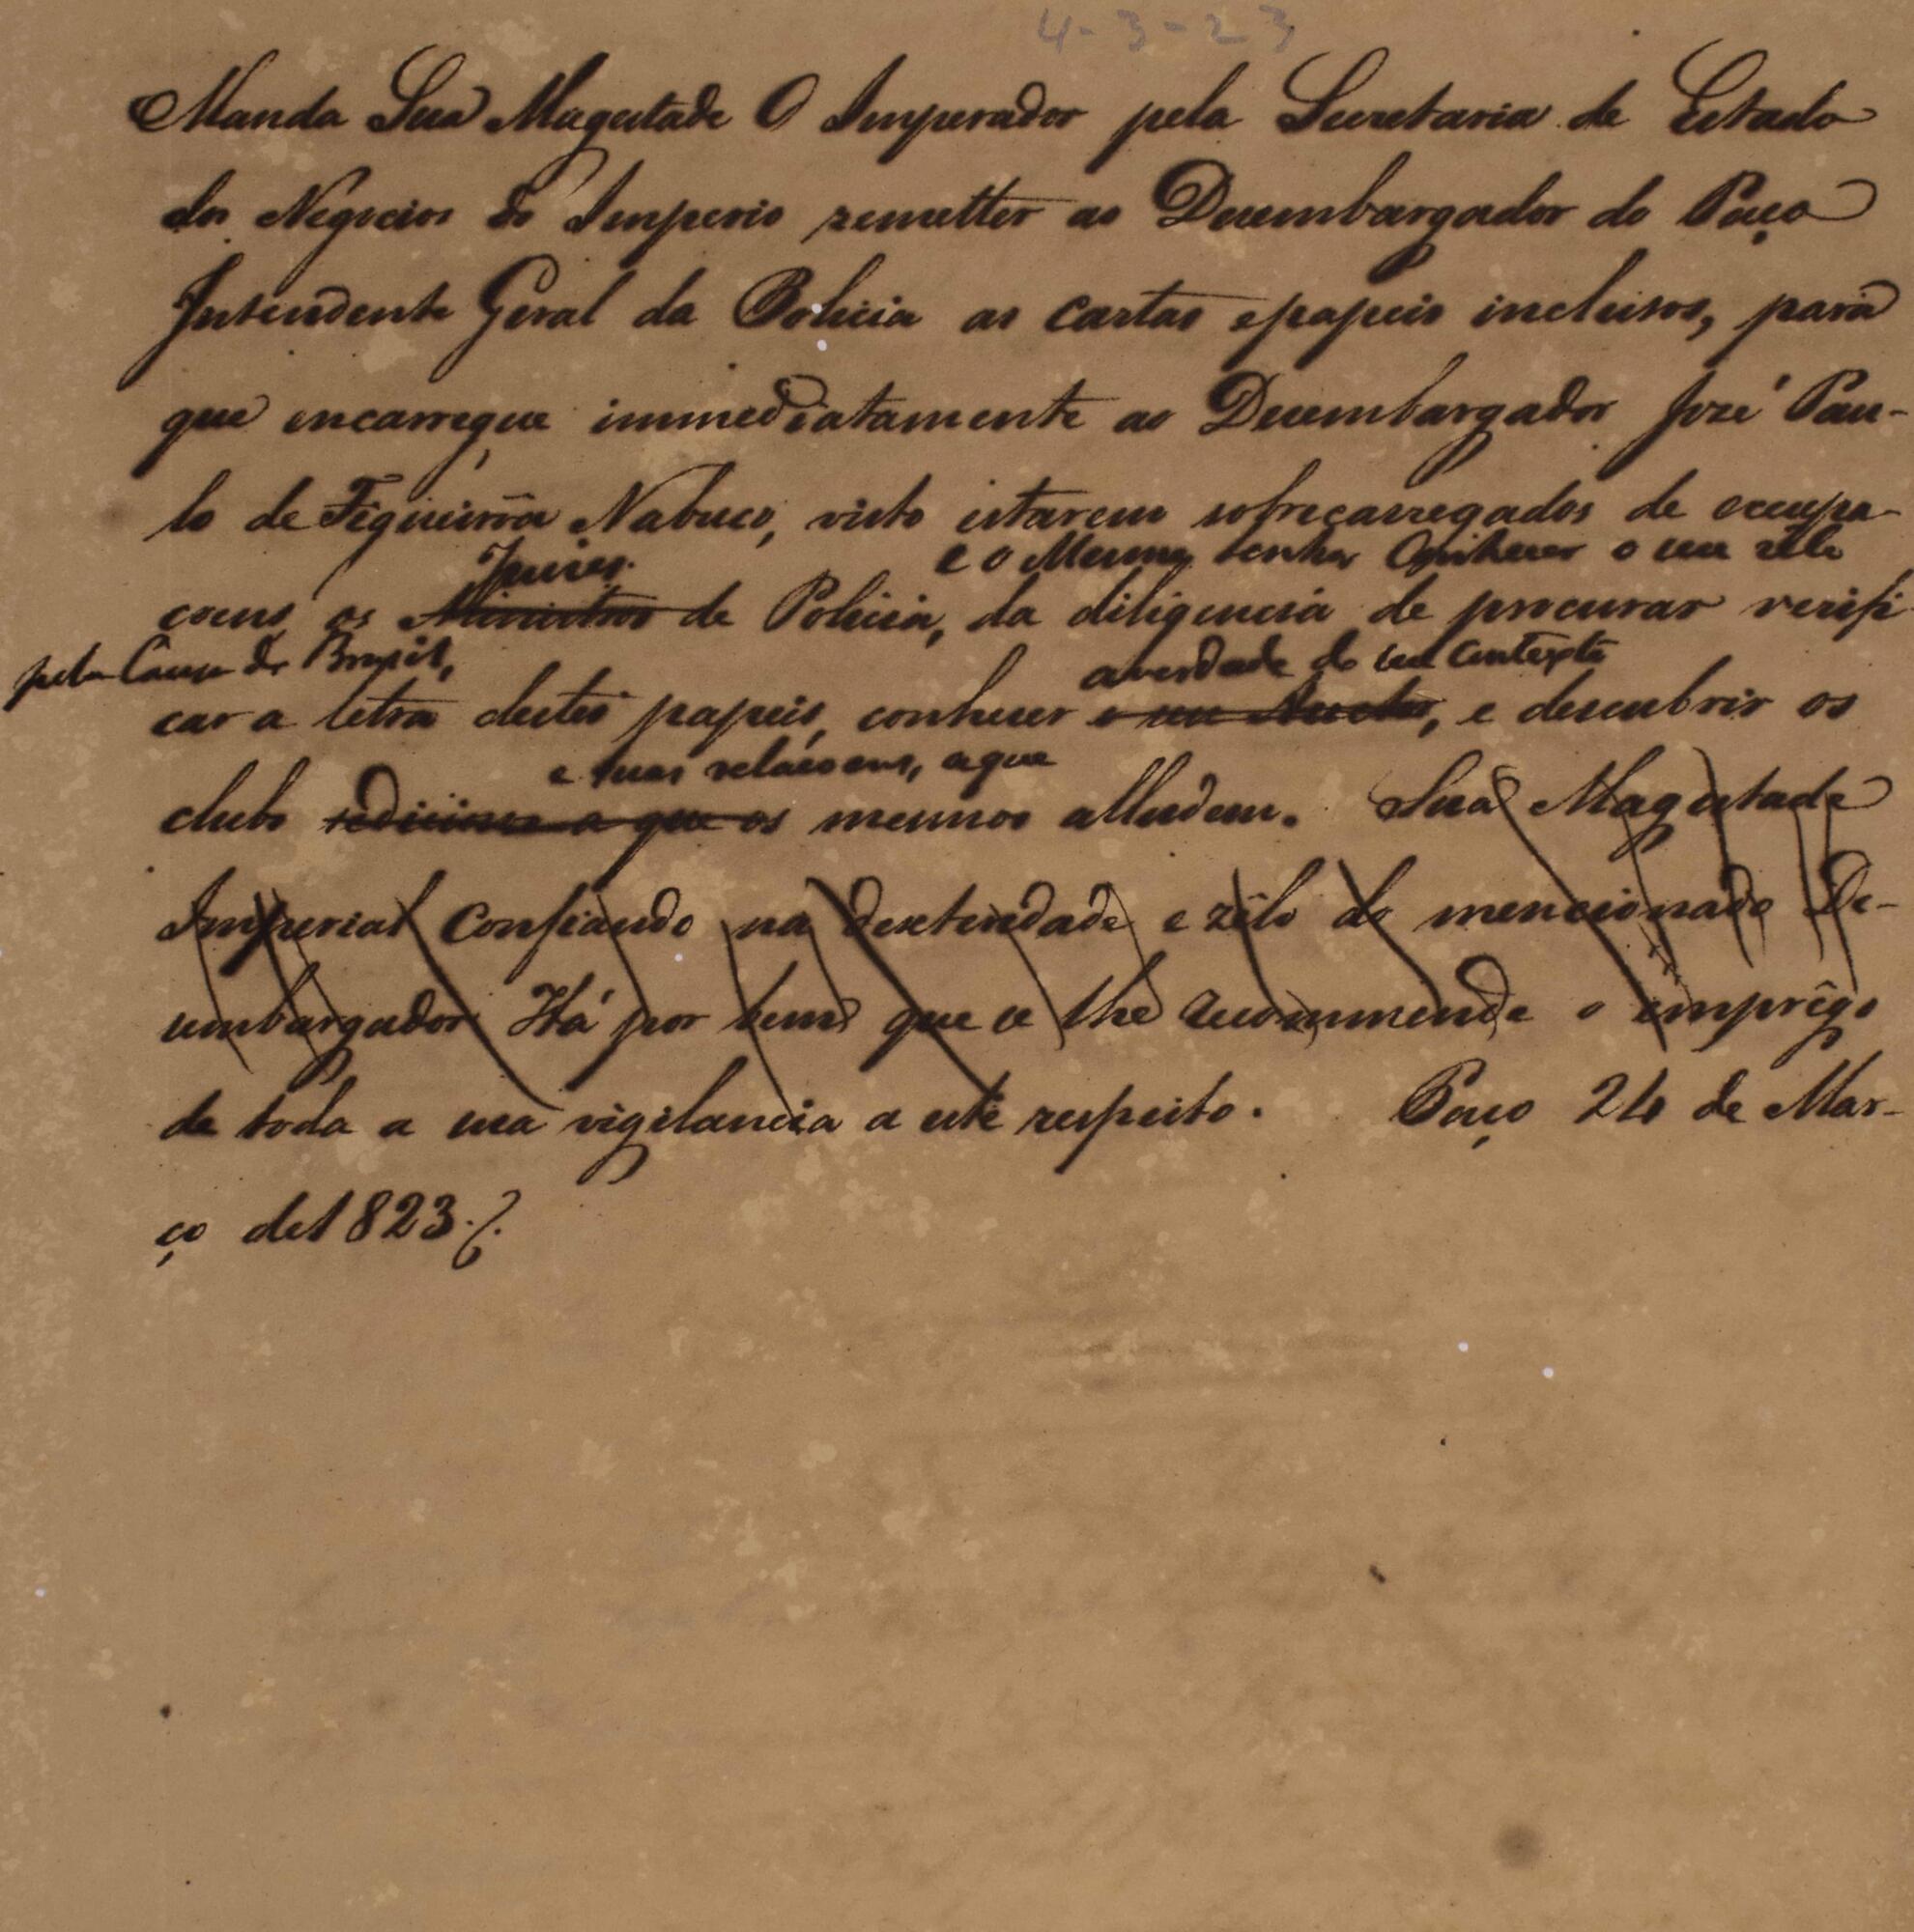 4-3-23
Manda Sua Magestade O Imperador pela Secretaria de Estado
dos Negocios do Imperio remetter ao Desembargador do Paço
Intendente Geral da Policia as cartas e papeis inclusos, para
que encarregue immediatamente ao Desembargador Jozé Pau-
lo de Figueirôa Nabuco, visto estarem sobrecarregados de occupa-
Juizes e o Mesmo Senhor Conhecer o seu zêlo
çoens os Ministros de Policia, da diligencia de procurar verifi-
pela Causa do Brasil, a verdade do seu Contexto
car a letra destes papeis, conhecer o seu Auctor, e descubrir os
e suas relaçoens, a que
clubs sediciosos a que os mesmos alludem. Sua Magestade
Imperial Confiando na dexteridade e zêlo do mencionado De-
sembargador Há por bem que se lhe recommende o emprêgo
de toda a sua vigilancia a este respeito. Paço 24 de Mar-
ço de 1823.